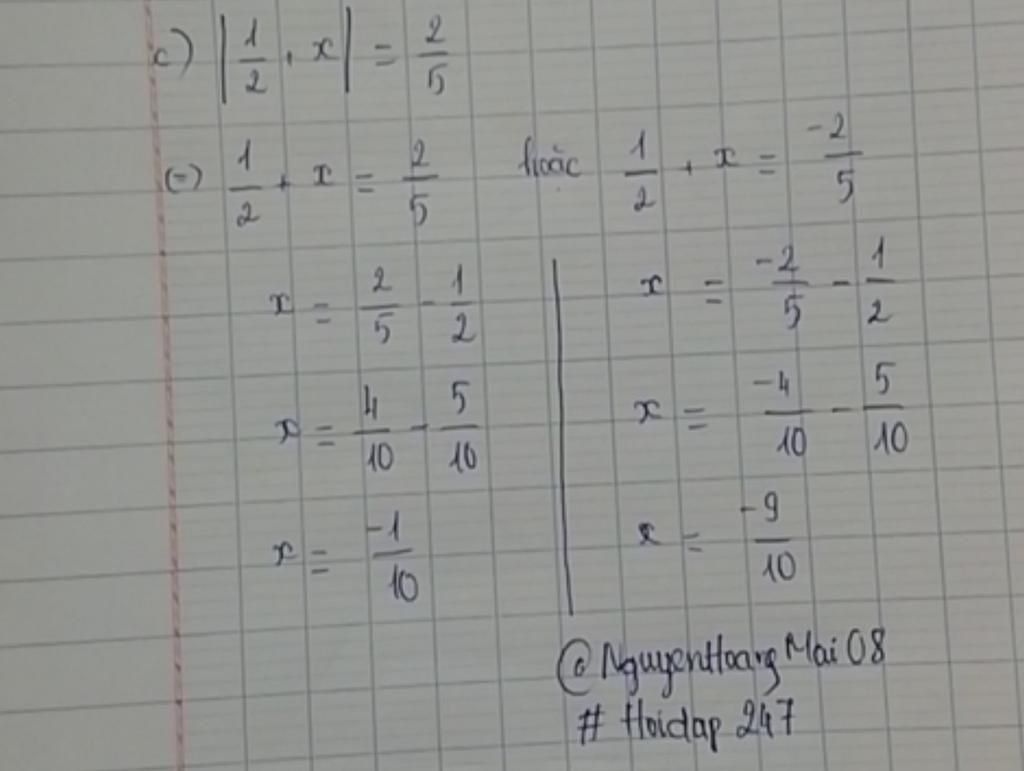 c) |1/2 + x| = 2/5
(=) 1/2 + x = 2/5 hoặc 1/2 + x = -2/5
x = 2/5 - 1/2 | x = -2/5 - 1/2
x = 4/10 - 5/10 | x = -4/10 - 5/10
x = -1/10 | x = -9/10
@NguyenHoangMai08
# Hoidap 247